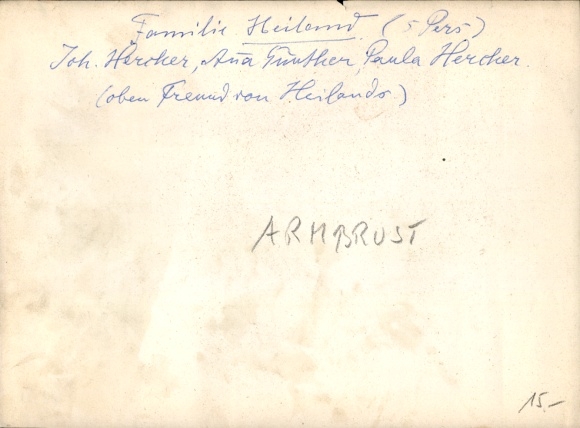 Familie Heiland (5 Pers)
Joh. Hercher, Ana Günther, Paula Hercher.
(oben Freund von Heilands.)
ARMBRUST
15.-